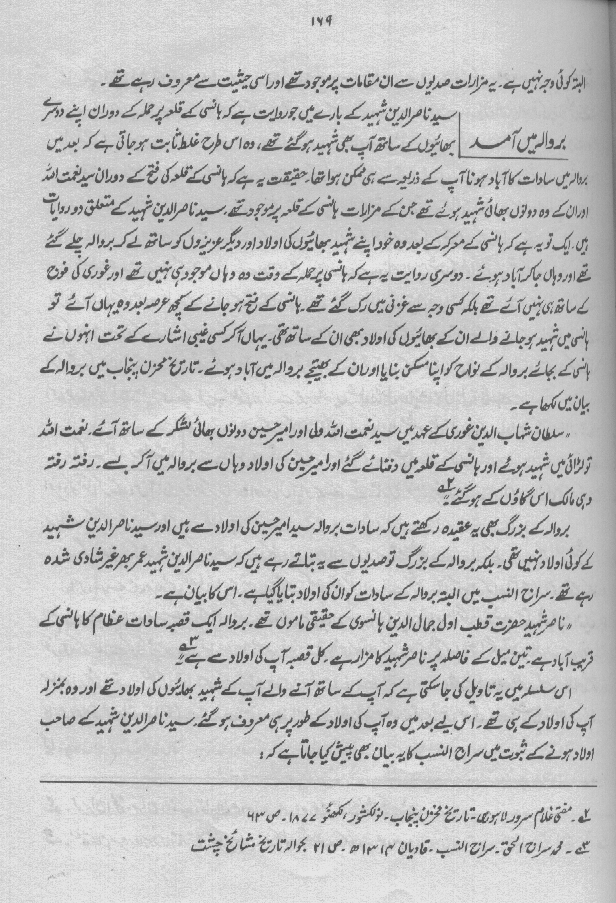 ۱۶۹
البتہ کوئی وجہ نہیں ہے۔ یہ مزارات صدیوں سے ان مقامات پر موجود تھے اور اسی حیثیت سے معروف رہے تھے۔
بروالہ میں آمد
سید ناصر الدین شہید کے بارے میں جو روایت ہے کہ ہانسی کے قلعہ پر حملہ کے دوران اپنے دوسرے
بھائیوں کے ساتھ آپ بھی شہید ہو گئے تھے، وہ اس طرح غلط ثابت ہو جاتی ہے کہ بعد میں
بروالہ میں سادات کا آباد ہونا آپ کے ذریعہ سے ہی ممکن ہوا تھا۔ حقیقت یہ ہے کہ ہانسی کے قلعہ کی فتح کے دوران سید نعمت اللہ
اور ان کے وہ دونوں بھائی شہید ہوئے تھے جن کے مزارات ہانسی کے قلعہ پر موجود تھے۔ سید ناصر الدین شہید کے متعلق دو روایات
ہیں۔ ایک تو یہ ہے کہ ہانسی کے معرکہ کے بعد وہ خود اپنے شہید بھائیوں کی اولاد اور دیگر عزیزوں کو ساتھ لے کر بروالہ چلے گئے
تھے اور وہاں جا کر آباد ہوئے۔ دوسری روایت یہ ہے کہ ہانسی پر حملہ کے وقت وہ وہاں موجود ہی نہیں تھے اور غوری کی فوج
کے ساتھ ہی نہیں آئے تھے بلکہ کسی وجہ سے غزنی میں رک گئے تھے۔ ہانسی کے فتح ہو جانے کے کچھ عرصہ بعد وہ یہاں آئے تو
ہانسی میں شہید ہو جانے والے ان کے بھائیوں کی اولاد بھی ان کے ساتھ تھی۔ یہاں آکر کسی غیبی اشارے کے تحت انہوں نے
ہانسی کے بجائے بروالہ کے نواح کو اپنا مسکن بنایا اور ان کے بھتیجے بروالہ میں آباد ہوئے۔ تاریخ مخزن پنجاب میں بروالہ کے
بیان میں لکھا ہے۔
"سلطان شہاب الدین غوری کے عہد میں سید نعمت اللہ ولی اور امیر حسین دونوں بھائی لشکر کے ساتھ آئے۔ نعمت اللہ
تو لڑائی میں شہید ہوئے اور ہانسی کے قلعہ میں دفنائے گئے اور امیر حسین کی اولاد وہاں سے بروالہ میں آکر بسے۔ رفتہ رفتہ
وہی مالک اس گاؤں کے ہو گئے۔"۲
بروالہ کے بزرگ بھی یہ عقیدہ رکھتے ہیں کہ سادات بروالہ سید امیر حسین کی اولاد سے ہیں اور سید ناصر الدین شہید
کے کوئی اولاد نہیں تھی۔ بلکہ بروالہ کے بزرگ تو صدیوں سے یہ بتاتے رہے ہیں کہ سید ناصر الدین شہید عمر بھر غیر شادی شدہ
رہے تھے۔ سراج النسب میں البتہ بروالہ کے سادات کو ان کی اولاد بتایا گیا ہے۔ اس کا بیان ہے۔
"ناصر شہید حضرت قطب اول جمال الدین ہانسوی کے حقیقی ماموں تھے۔ بروالہ ایک قصبہ سادات عظام کا ہانسی کے
قریب آباد ہے۔ تین میل کے فاصلہ پر ناصر شہید کا مزار ہے۔ کل قصبہ آپ کی اولاد سے ہے۔"۳
اس سلسلہ میں یہ تاویل کی جا سکتی ہے کہ آپ کے ساتھ آنے والے آپ کے شہید بھائیوں کی اولاد تھے اور وہ بمنزلہ
آپ کی اولاد کے ہی تھے۔ اس لیے بعد میں وہ آپ کی اولاد کے طور پر ہی معروف ہو گئے۔ سید ناصر الدین شہید کے صاحب
اولاد ہونے کے ثبوت میں سراج النسب کا یہ بیان بھی پیش کیا جاتا ہے کہ:
۲۔ مفتی غلام سرور لاہوری۔ تاریخ مخزن پنجاب۔ نولکشور، لکھنؤ ۱۸۷۷۔ ص ۶۳
۳۔ محمد سراج الحق۔ سراج النسب۔ قادیان ۱۳۱۴ھ۔ ص ۲۱ بحوالہ تاریخ مشائخ چشت